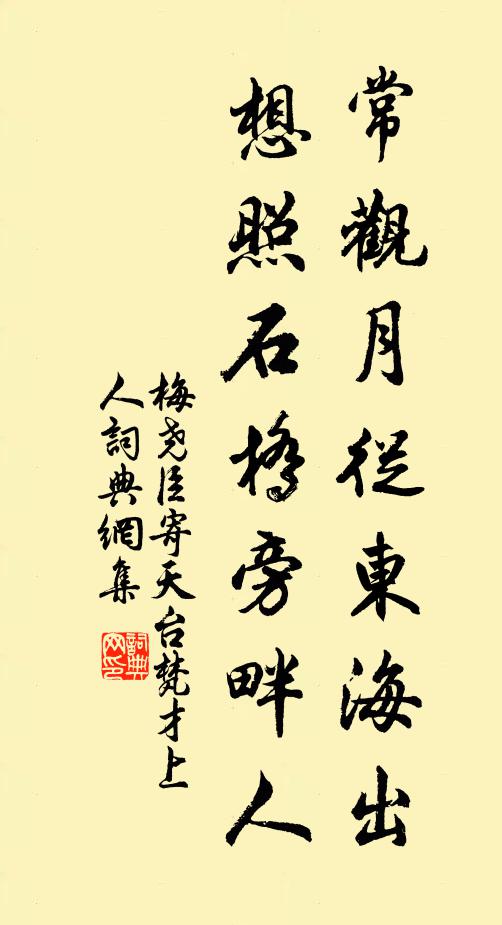 常觀月從東海出
想照石橋旁畔人
梅尧臣寄天台梵才上
人詞典網集